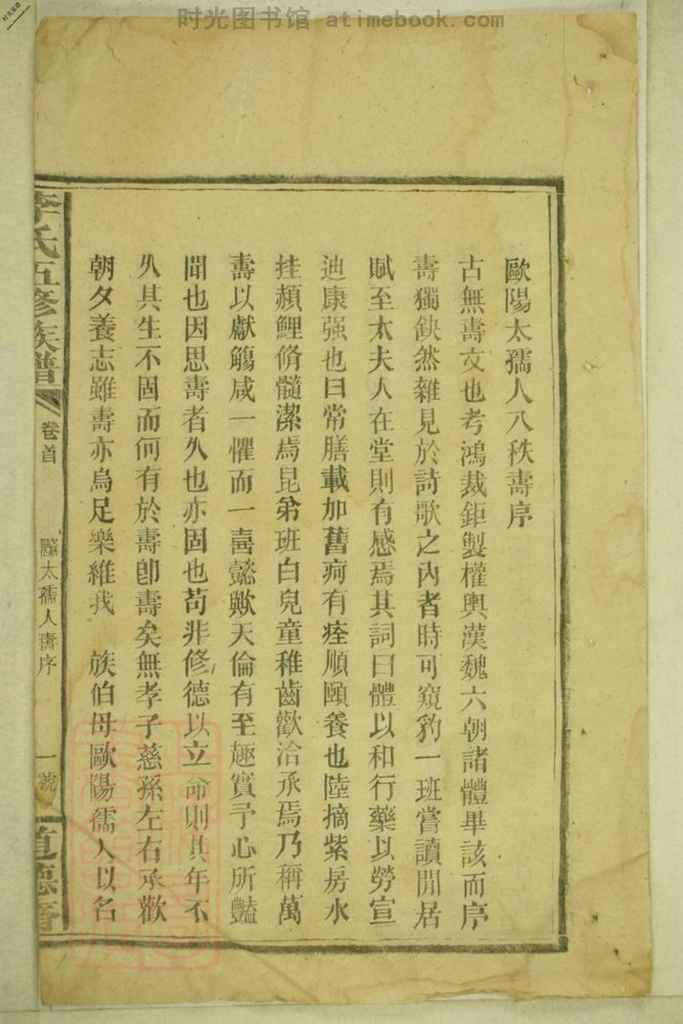 时光图书馆 atimebook.com
歐陽太孺人八秩壽序
古無壽文也考鴻裁鉅製權輿漢魏六朝諸體畢該而序
壽獨缺然雜見於詩歌之內者時可窺豹一班嘗讀閒居
賦至太夫人在堂則有感焉其詞曰體以和行藥以勞宣
迪康强也曰常膳載加舊痾有痊順頤養也陸摘紫房水
挂頳鯉脩髓潔焉昆弟班白兒童稚齒歡洽承焉乃稱萬
壽以獻觴咸一懼而一喜懿歟天倫有至趣實予心所豔
聞也因思壽者久也亦固也苟非修德以立命則其年不
久其生不固而何有於壽卽壽矣無孝子慈孫左右承歡
朝夕養志雖壽亦烏足樂維我 族伯母歐陽孺人以名
李氏五修族譜
卷首
太孺人壽序
一號
道德堂